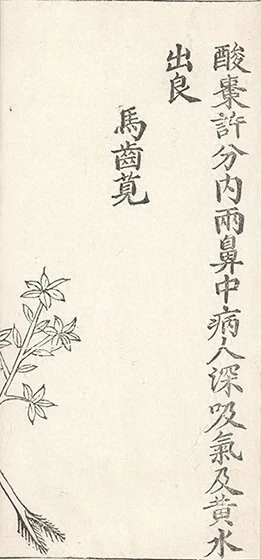 酸棗許分内兩鼻中病人深吸氣及黄水
出良
馬齒莧